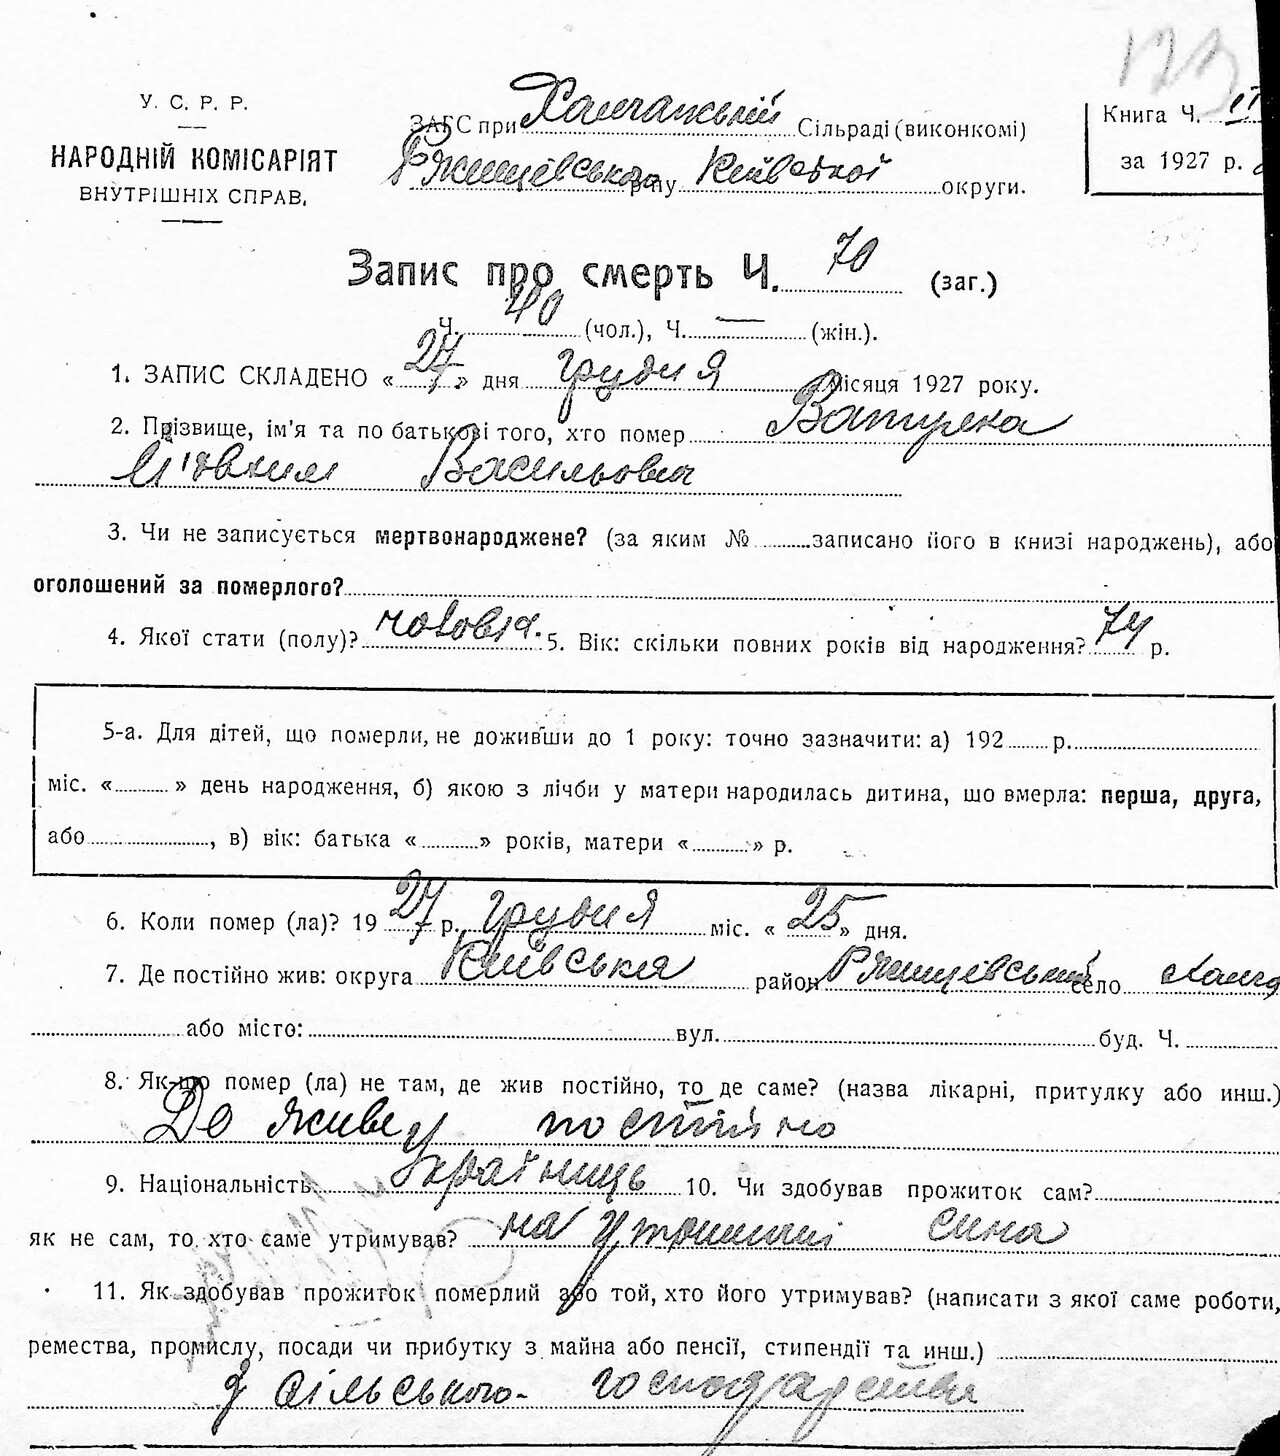 У. С. Р. Р.
НАРОДНІЙ КОМІСАРІЯТ
ВНУТРІШНІХ СПРАВ.
ЗАГС при Сільраді (виконкомі)
Ржищівського р-ну Київської округи.
Книга Ч.
за 1927 р.
Запис про смерть Ч. 70 (заг.)
Ч. 40 (чол.), Ч. — (жін.).
1. ЗАПИС СКЛАДЕНО « 27 » дня грудня місяця 1927 року.
2. Прізвище, ім'я та по батькові того, хто помер
3. Чи не записується мертвонароджене? (за яким № записано його в книзі народжень), або
оголошений за померлого?
4. Якої стати (полу)? 5. Вік: скільки повних років від народження? 74 р.
5-а. Для дітей, що померли, не доживши до 1 року: точно зазначити: а) 192 р.
міс. « » день народження, б) якою з лічби у матери народилась дитина, що вмерла: перша, друга,
або , в) вік: батька « » років, матери « » р.
6. Коли помер (ла)? 19 27 р. грудня міс. « 25 » дня.
7. Де постійно жив: округа Київська район Ржищівський село
або місто: вул. буд. Ч.
8. Як-що помер (ла) не там, де жив постійно, то де саме? (назва лікарні, притулку або инш.)
Де живе постійно
9. Національність Українець 10. Чи здобував прожиток сам?
як не сам, то хто саме утримував? на утриманні сина
11. Як здобував прожиток померлий або той, хто його утримував? (написати з якої саме роботи,
ремества, промислу, посади чи прибутку з майна або пенсії, стипендії та инш.)
з сільського господарства